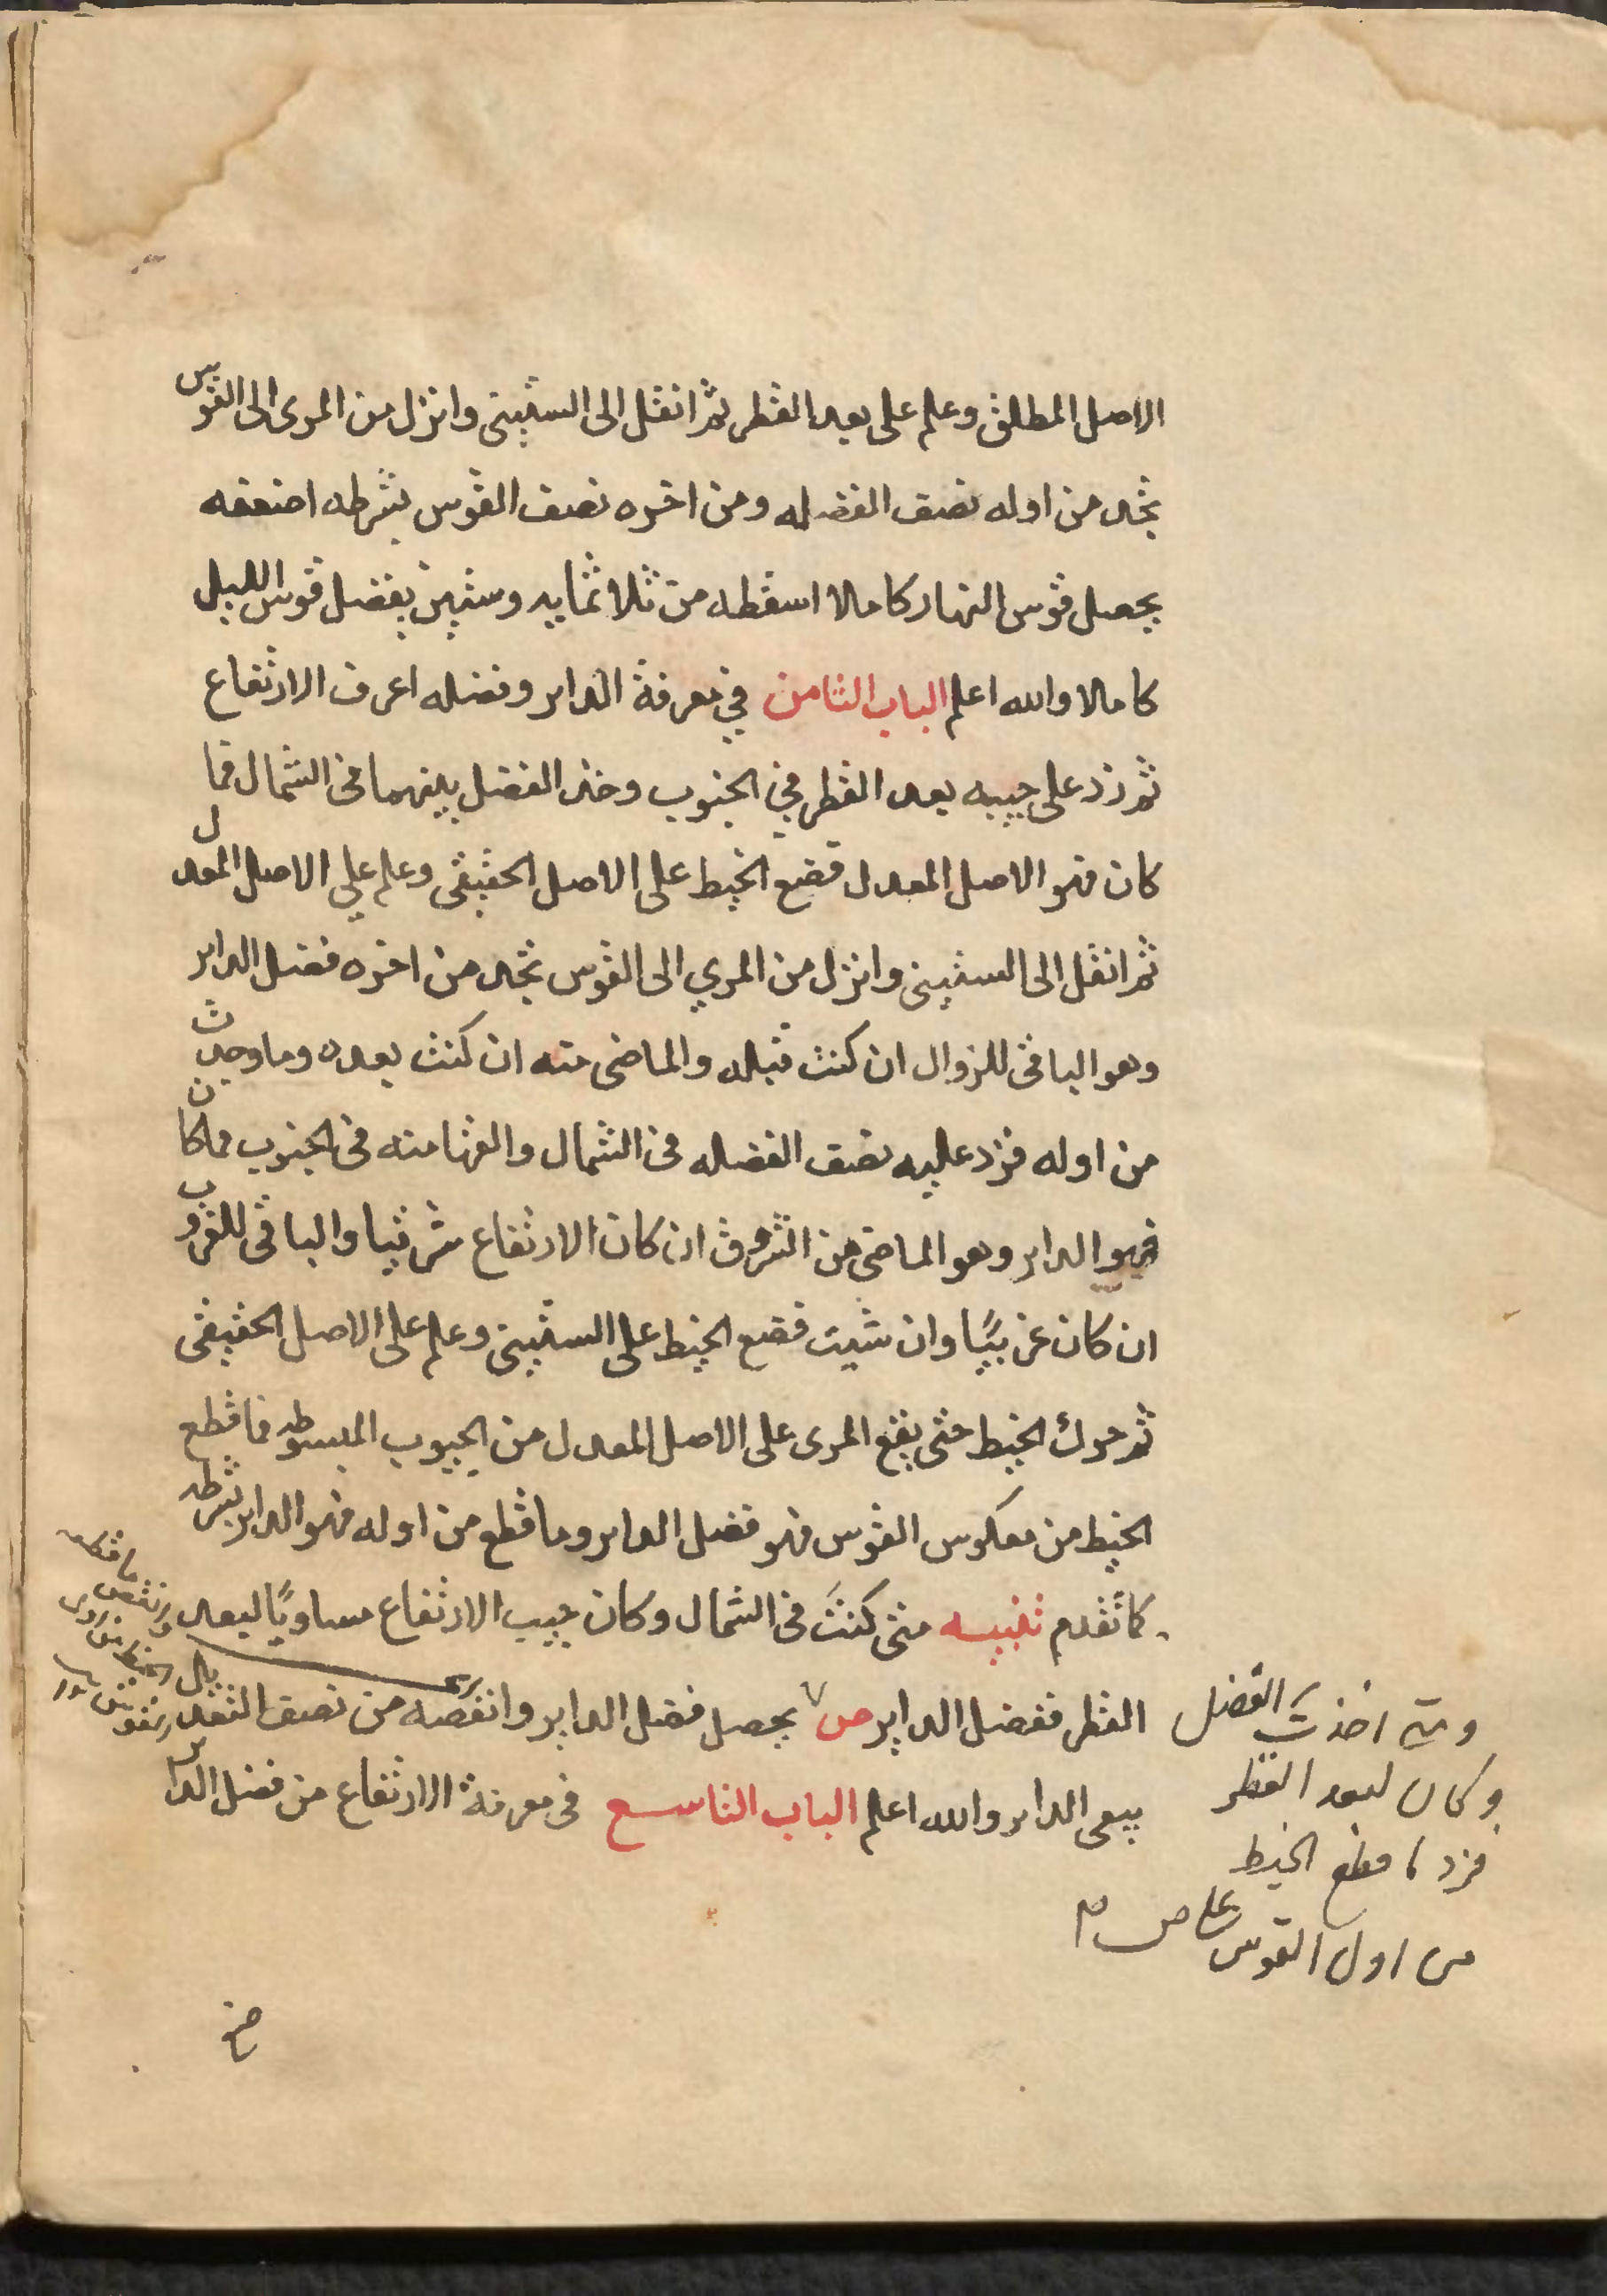 الاصل المطلق وعلم على بعد القطر ثم انقل الى الستيني وانزل من المرى الى القوس
تجد من اوله نصف الفضله ومن اخره نصف القوس بشرطه اضعفه
يحصل قوس النهار كاملا اسقطه من ثلاثمايه وستين يفضل قوس الليل
كاملا والله اعلم الباب الثامن في معرفة الداير وفضله اعرف الارتفاع
ثم زد على جيبه بعد القطر في الجنوب وخذ الفضل بينهما في الشمال فما
كان فهو الاصل المعدل فضع الخيط على الاصل الحقيقى وعلم علي الاصل المعدل
ثم انقل الى الستيني وانزل من المري الى القوس تجد من اخره فضل الداير
وهو الباقى للزوال ان كنت قبله والماضى منه ان كنت بعده وما وجدت
من اوله فزد عليه نصف الفضله فى الشمال والقها منه فى الجنوب فما كان
فهو الداير وهو الماضى من الشروق ان كان الارتفاع شرقيا والباقى للغروب
ان كان غربيًا وان شيت فضع الخيط على الستيني وعلم على الاصل الحقيقى
ثم حرك الخيط حتى يقع المرى على الاصل المعدل من الجيوب المبسوطه فما قطع
الخيط من معكوس القوس فهو فضل الداير وما قطع من اوله فهو الداير بشرطه
كما تقدم تنبيه متى كنتَ فى الشمال وكان جيب الارتفاع مساويًا لبعد
القطر ففضل الداير ص يحصل فضل الداير وانقصه من نصف
يبقى الداير والله اعلم الباب التاسع فى معرفة الارتفاع من فضل الداير
ومتى اخذت الفضل
وكان لبعد القطر
فزد ما قطع الخيط
من اول القوس على ص م